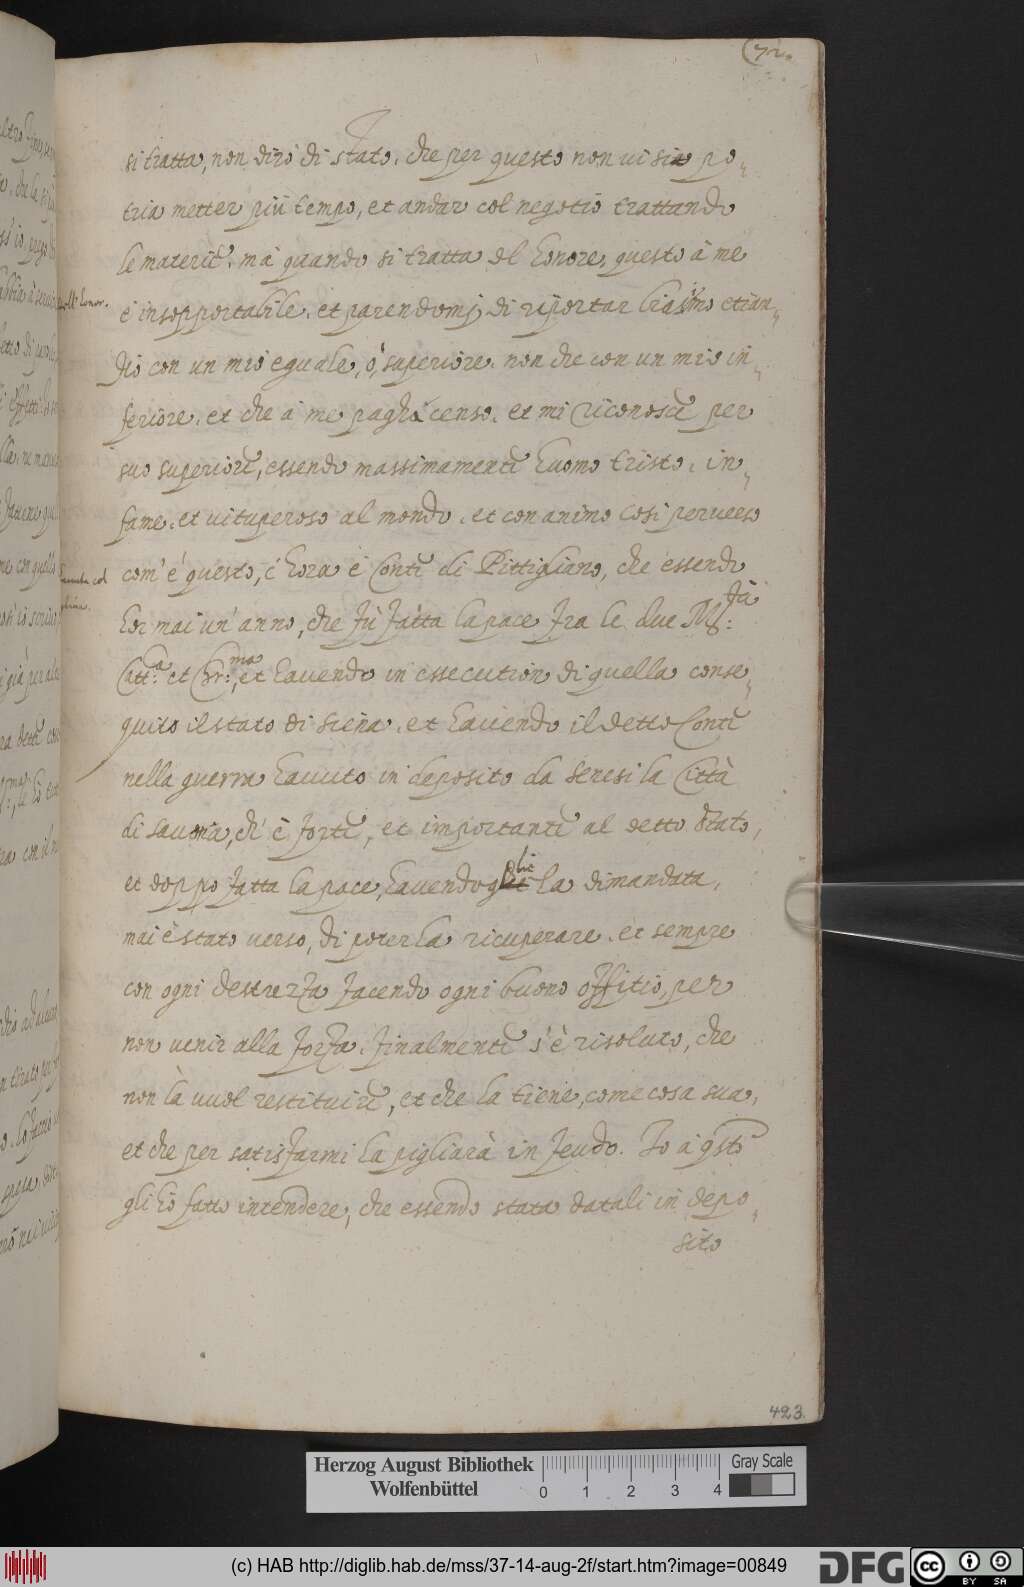 72.
si tratta, non dirò di stato, che per questo non vi sia po-
tria metter più tempo, et andar col negotio trattando
le materie, mà quando si tratta del honore, questo à me
è insopportabile, et parendomj di riportar biasimo etian-
dio con un mio eguale, ò superiore, non che con un mio in-
feriore, et che à me pagha censo, et mi riconosce per
suo superiore, essendo massimamente huomo tristo, in-
fame, et vituperoso al mondo, et con animo così perverso
com' è questo, è hora è Conte di Pittigliano, che essendo
hor mai un' anno, che fù fatta la pace fra le due M.tà
Catt.a et Chr.ma, et havendo in essecution di quella conse-
quito il stato di Siena, et havendo il detto Conte
nella guerra havuto in deposito da Senesi la Città
di Savona, ch' è forte, et importante al detto Stato,
et doppo fatta la pace, havendoglie la dimandata,
mai è stato verso, di poterla ricuperare, et sempre
con ogni destrezza facendo ogni buono offitio, per
non venir alla forza, finalmente s' è risoluto, che
non là vuol restituire, et che la tiene, come cosa sua,
et che per satisfarmi la pigliarà in feudo. Io à qsto
gli hò fatto intendere, che essendo stata datali in depo-
sito
423
Herzog August Bibliothek
Wolfenbüttel
0 1 2 3 4
Gray Scale
(c) HAB http://diglib.hab.de/mss/37-14-aug-2f/start.htm?image=00849
DFG
cc BY SA